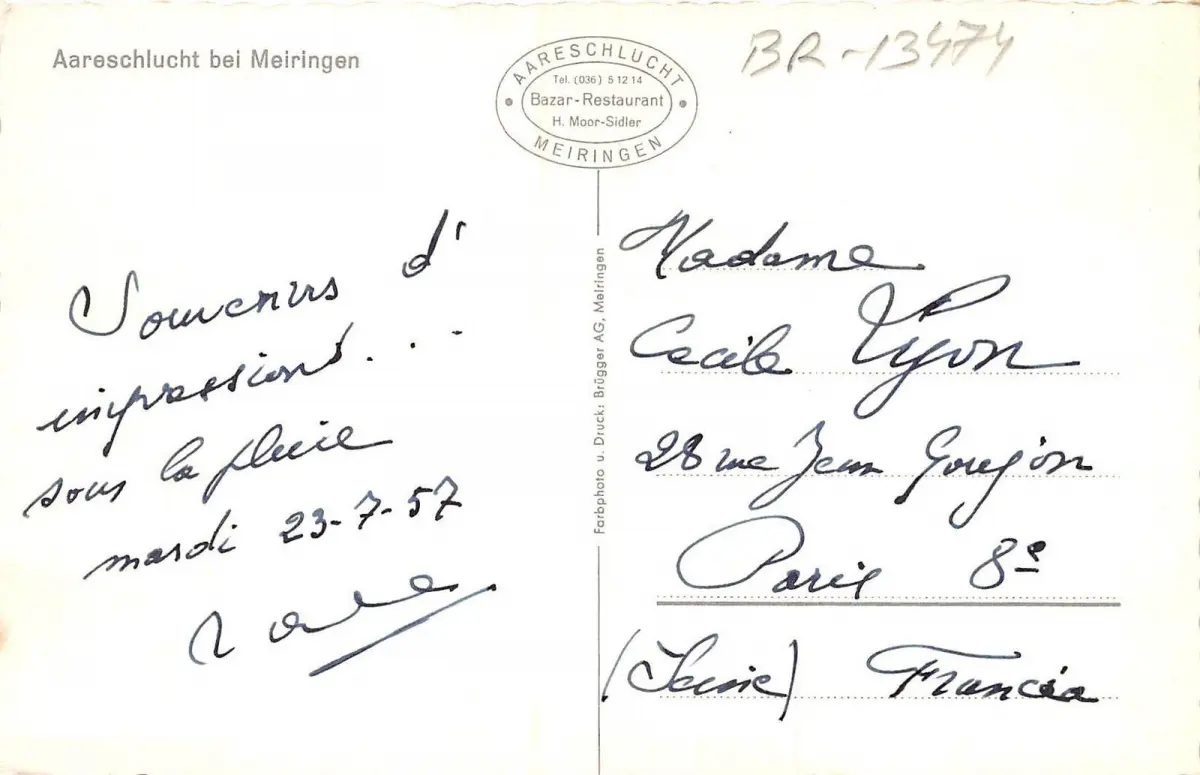 Aareschlucht bei Meiringen
AARESCHLUCHT
Tel. (036) 5 12 14
Bazar-Restaurant
H. Moor-Sidler
MEIRINGEN
BR-13474
Souvenirs d'
impressions...
sous la pluie
mardi 23-7-57
Farbphoto u. Druck: Brügger AG, Meiringen
Madame
Cecile Lyon
28 rue Jean Goujon
Paris 8e
(Seine) Francia